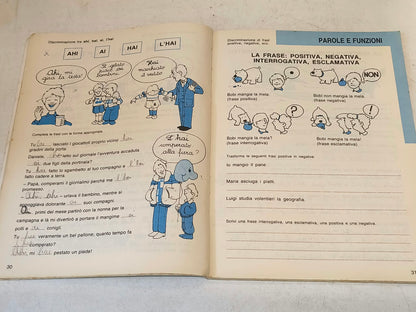 Discriminazione tra ahi, hai, ai, l'hai.
AHI
AI
HAI
L'HAI
Ahi, mi gira la testa!
Il gelato piace ai bambini.
Hai macchiato il vestito
L'hai comperato alla fiera?
Completa le frasi con la forma appropriata.
Tu hai lasciato i giocattoli proprio vicino ai
gradini della porta
Daniela, hai fatto sul giornale l'avventura accaduta
ai due figli della portinaia?
Tu hai fatto lo sgambetto al tuo compagno e l'hai
fatto cadere a
– Papà, comperami il giornalino perché me l'hai
promesso.
urlava il bambino, mentre si
dolorante ai suoi compagni.
Ai primi del mese partirò con la nonna per la
campagna e là mi divertirò a portare il mangime ai
polli e ai conigli.
Tu hai veramente un bel pallone; quanto tempo fa
l'hai comperato?
Ahi, mi hai pestato un piede!
30
Discriminazione di frasi
positive, negative, ecc.
PAROLE E FUNZIONI
LA FRASE: POSITIVA, NEGATIVA,
INTERROGATIVA, ESCLAMATIVA
NON
Bobi mangia la mela
(frase positiva)
Bobi non mangia la mela
(frase negativa)
?
!
Bobi mangia la mela?
(frase interrogativa)
Bobi mangia la mela!
(frase esclamativa)
Trasforma le seguenti frasi positive in negative.
Io mangio il pane.
Maria asciuga i piatti.
Luigi studia volentieri la geografia.
Scrivi una frase interrogativa, una esclamativa, una positiva e una negativa.
31